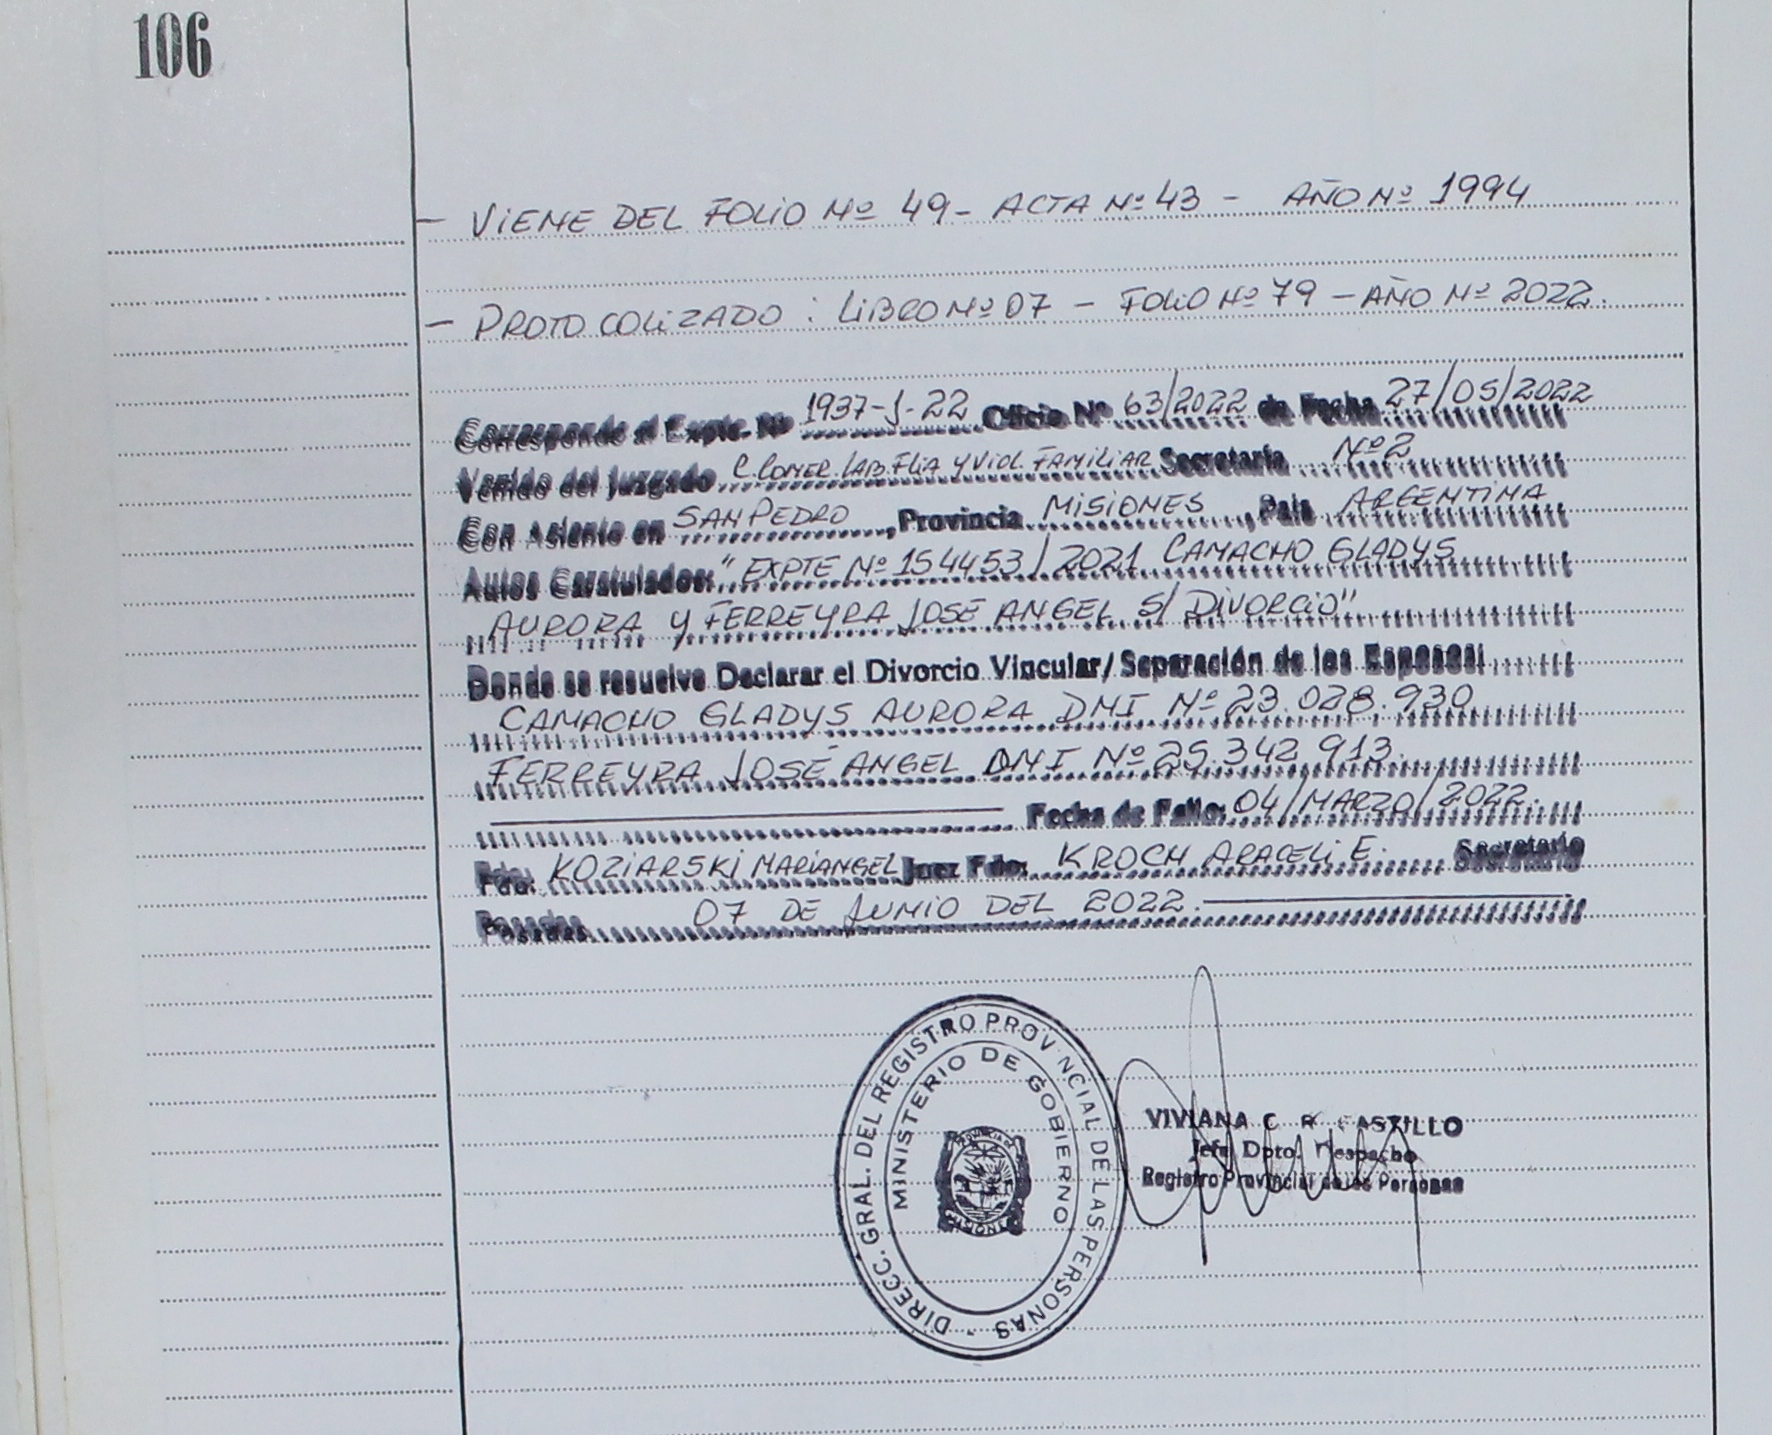 106
– VIENE DEL FOLIO Nº 49 – ACTA Nº 43 – AÑO Nº 1994
– PROTOCOLIZADO : LIBRO Nº 07 – FOLIO Nº 79 – AÑO Nº 2022.
Corresponde al Expte. Nº 1937-J-22 Oficio Nº 63/2022 de Fecha 27/05/2022
Venido del Juzgado C. COMER. LAB. FLIA Y VIOL. FAMILIAR Secretaría Nº 2
Con Asiento en SAN PEDRO, Provincia MISIONES, País ARGENTINA
Autos Caratulados: "EXPTE Nº 154453/2021 CAMACHO GLADYS
AURORA Y FERREYRA JOSE ANGEL S/ DIVORCIO"
Donde se resuelve Declarar el Divorcio Vincular/Separación de los Esposos:
CAMACHO GLADYS AURORA DNI Nº 23.028.930
FERREYRA JOSÉ ANGEL DNI Nº 25.342.913.
Fecha de Fallo: 04/MARZO/2022.
Fdo: KOZIARSKI MARIANGEL Juez Fdo: KROCH ARACELI E. Secretario
Posadas, 07 DE JUNIO DEL 2022.
DIRECC. GRAL. DEL REGISTRO PROVINCIAL DE LAS PERSONAS -
MINISTERIO DE GOBIERNO
PROVINCIA DE
MISIONES
VIVIANA C. R. CASTILLO
Jefa Dpto. Despacho
Registro Provincial de las Personas